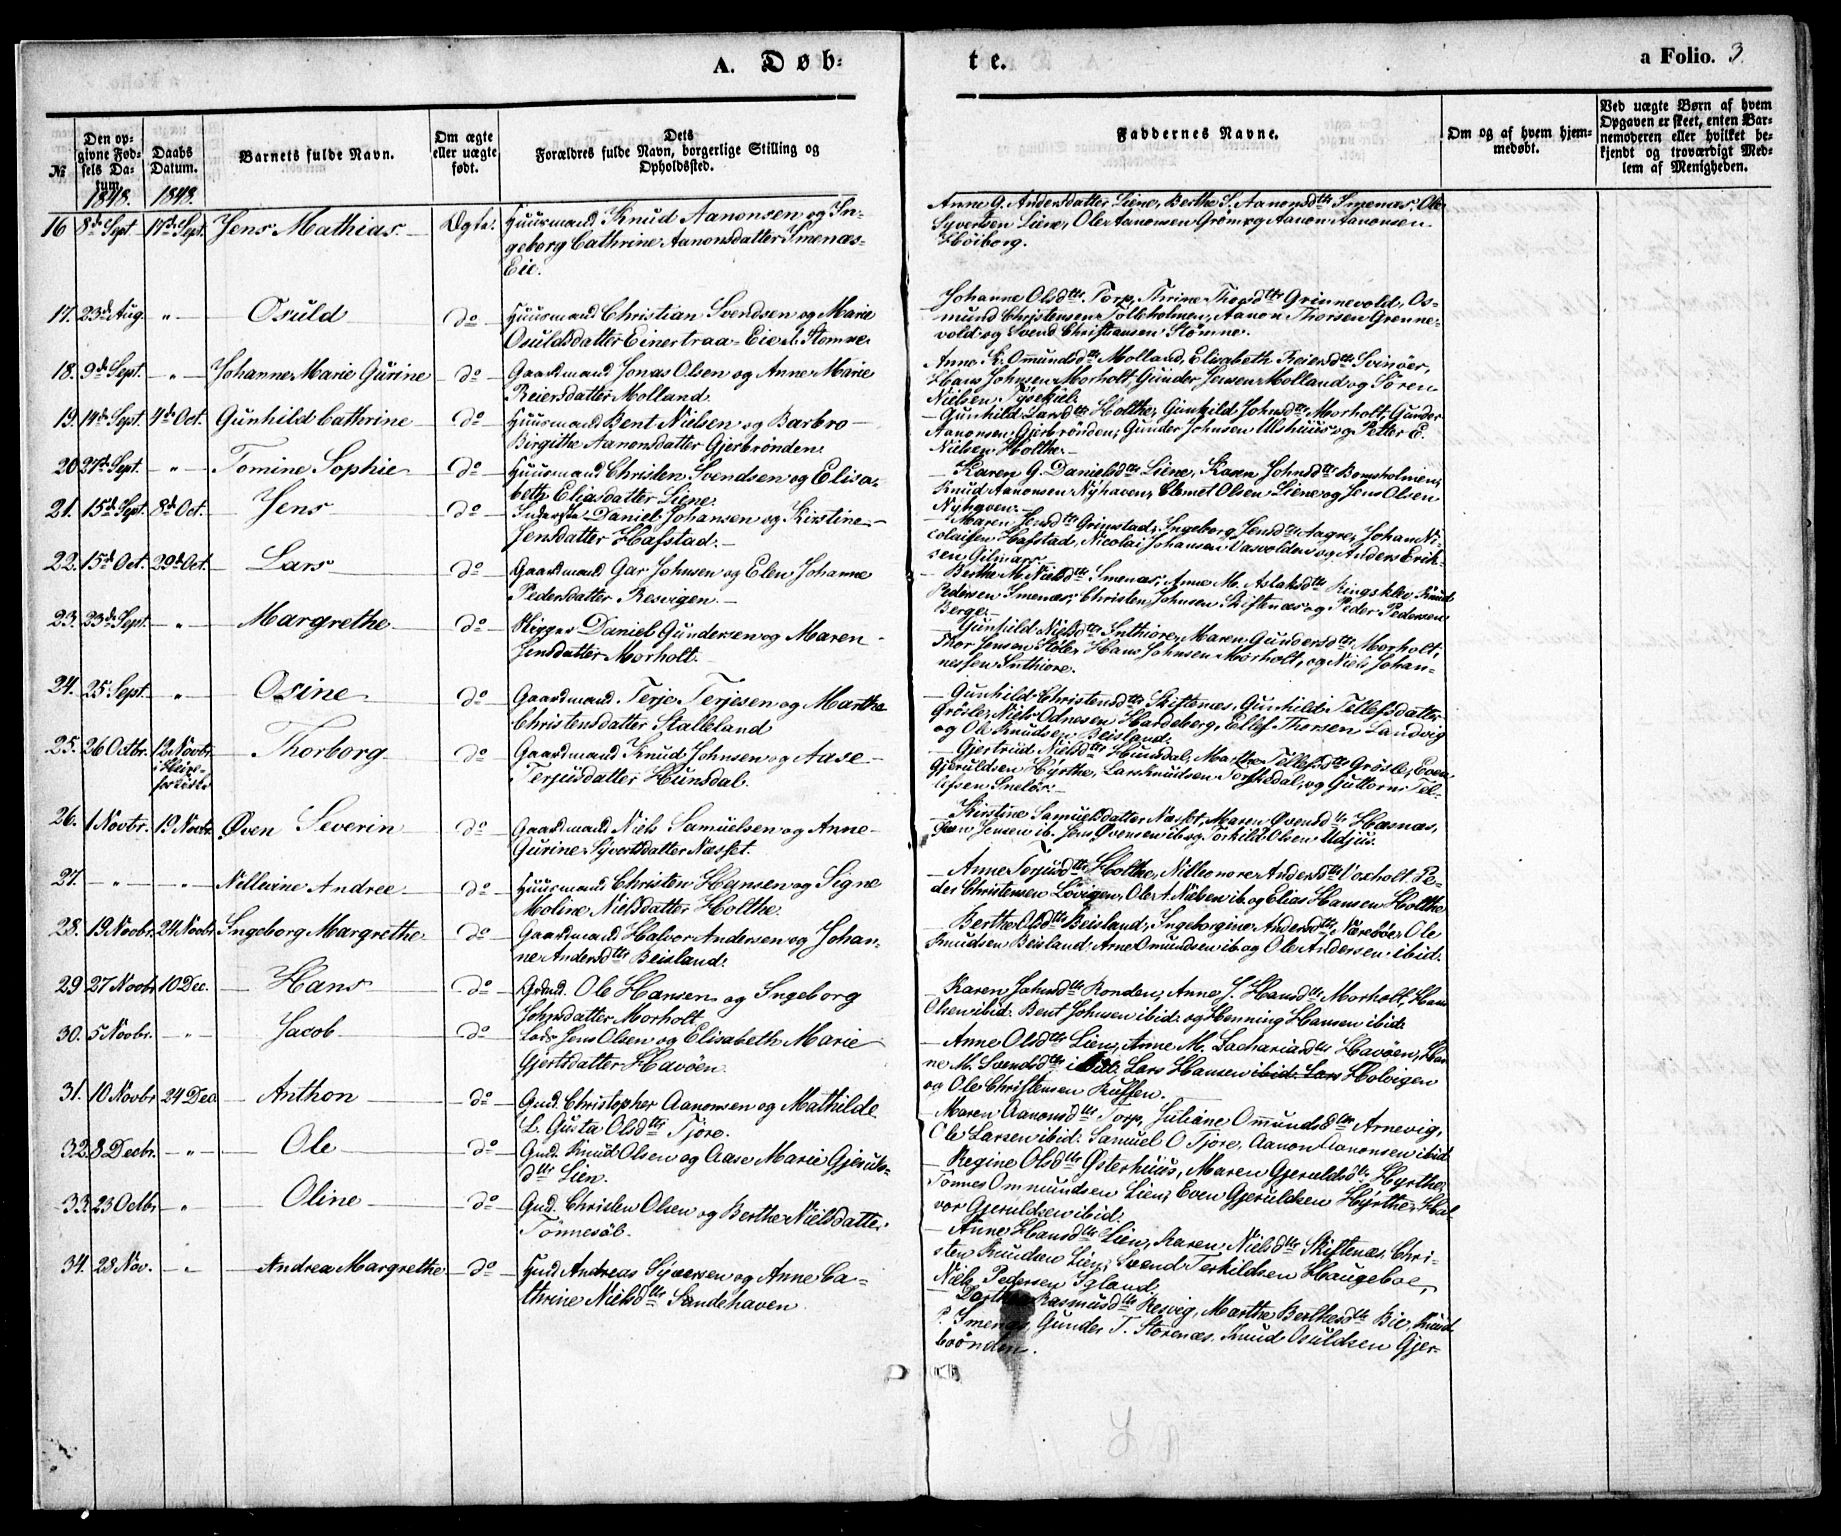 A. Døb-
te.
a Folio. 3
№
Den opgivne Fødsels Datum.
1848.
Daabs Datum.
1848.
Barnets fulde Navn.
Om ægte eller uægte født.
Dets Forældres fulde Navn, borgerlige Stilling og Opholdssted.
Faddernes Navne.
Om og af hvem hjemmedøbt.
Ved uægte Børn af hvem Opgaven er skeet, enten Barnemoderen eller hvilket bekjendt og troværdigt Medlem af Menigheden.
16 8de Sept. 17de Sept. Jens Mathias Ægte. Huusmand Knud Aanonsen og In-
geborg Cathrine Aanonsdatter Smenæs-
Eie.
Anne G. Andersdatter Liene, Berthe S. Aanonsdtr Smenæs, Ole
Syvertsen Liene, Ole Aanonsen Grøm og Aanon Aanonsen
Høiborg.
17. 23de Aug. " Osuld do Huusmand Christian Svendsen og Marie
Osuldsdatter Einertraa-Eie
Johanne Olsdtr Torp, Thrine Thorsdtr Grinnevold, Os-
mund Christensen Tolleholmen, Aanon Thorsen Grenne-
vold og Svend Christiansen Stømne.
18. 9de Sept. " Johanne Marie Gurine do Gaardmand Jonas Olsen og Anne Marie
Reiersdatter Molland.
Anne K. Omundsdtr Molland, Elisabeth Reiersdtr Svinøer,
Hans Johnsen Morholt, Gunder Jensen Molland og Søren
Nielsen
19. 14de Sept. 4de Oct. Gunhild Cathrine do Huusmand Bent Nielsen og Barbro
Birgithe Aanonsdatter Gjerbrønden.
Gunhild Larsdtr Holthe, Gunhild Johnsdtr Morholt, Gunder
Aanonsen Gjerbrønden, Gunder Johnsen Ulshuus og Petter E.
Nielsen Holthe.
20 27de Sept. " Tomine Sophie do Huusmand Christen Svendsen og Elisa-
beth Eliasdatter Liene.
Karen G. Danielsdtr Liene, Karen Johnsdtr Bomsholmen,
Knud Aanonsen Nyhaven, Clemet Olsen Liene og Jens Olsen
21. 15de Sept. 8de Oct. Jens do Daniel Johansen og Kirstine
Jensdatter Hafstad.
Maren Jensdtr Grimstad, Ingeborg Jensdtr Aagre, Johan Ni-
colaisen Hafstad, Nicolai Johansen Vasvolden og Anders Erik-
sen
22. 15de Oct. 29de Oct. Lars do Gaardmand Gar Johnsen og Elen Johanne
Pedersdatter Resvigen.
Berthe M. Nielsdtr Smenæs, Anne M. Aslaksdtr Ringsklev, Knud
Pedersen Smenæs, Christen Johnsen Skiftenæs og Peder Pedersen
Berge.
23. 23de Sept. " Margrethe do Skipper Daniel Gundersen og Maren
Jensdatter Morholt.
Gunhild Nielsdtr Inthiore, Maren Gundersdtr Morholt,
Thor Jensen Støle, Hans Johnsen Morholt, og Niels Johan-
nesen Inthiore.
24. 25 Sept. " Osine do Gaardmand Terje Terjesen og Marthe
Christensdatter Stalleland
Gunhild Christensdtr Skiftenæs, Gunhild Tellefsdatter
Grøsle, Niels Odnesen Hardeberg, Ellef Thorsen Landvig
og Ole Knudsen Beisland.
25. 26 Octbr. 12 Novbr. Thorborg do Gaardmand Knud Johnsen og Aase
Terjusdatter Hunsdal.
Gjertrud Nielsdtr Hunsdal, Marthe Tellefsdtr Grøsle, Even
Gjeruldsen Hyrthe, Lars Knudsen Torpsdal, og Guttorm Tel-
lefsen
26. 1 Novbr. 19 Novbr. Øven Severin do Gaardmand Niels Samuelsen og Anne
Gurine Syvertsdatter Næsset.
Kirstine Samuelsdatter Næsset, Maren Øvensdtr Hæsnæs,
Øven Jensen ib. Jens Øvensen ib og Torkild Olsen Udjus.
27. " " Nillevine Andree do Huusmand Christen Hansen og Signe
Moline Nielsdatter Holthe.
Anne Torjusdtr Holthe, Nilleonore Andersdtr Voxholt, Pe-
der Christensen Løvigen, Ole A. Nielsen ib og Elias Hansen Holthe
28. 19 Novbr. 24 Novbr. Ingeborg Margrethe do Gaardmand Halvor Andersen og Johan-
ne Andersdtr Beisland.
Berthe Olsdtr Beisland, Ingeborgine Andersdtr Nørebøe, Ole
Knudsen Beisland, Arne Omundsen ib og Ole Andersen ibid.
29 27 Novbr 10 Dec. Hans do Grdmd. Ole Hansen og Ingeborg
Johnsdatter Morholt
Karen Johnsdtr Ronden, Anne J. Hansdtr Morholt, Hans
Olsen ibid. Bent Johnsen ibid. og Henning Hansen ibid.
30. 5 Novbr. " Jacob do Lods Jens Olsen og Elisabeth Marie
Gjertsdatter Havøen.
Anne Olsdtr Lien, Anne M. Zachariasdtr Havøen, Han-
ne M. Svendsdtr ibid. Lars Hansen ibid. Lars Holvigen
og Ole Christensen Ruffen.
31. 10 Novbr 24 Dec Anthon do Gmd. Christopher Aanonsen og Mathilde
L. Gusta Olsdtr Tjore.
Maren Aanonsdtr Torp, Juliane Omundsdtr Arnevig,
Ole Larsen ibid. Samuel O. Tjore, Aanon Aanonsen ibid
32. 8 Decbr. " Ole do Gmd. Knud Olsen og Aase Marie Gjerulds-
dtr Lien.
Regine Olsdtr Østerhuus, Maren Gjeruldsdtr Hyrthe,
Tønnes Ommundsen Lien, Even Gjeruldsen Hyrthe, Hal-
vor Gjeruldsen ibid.
33. 23 Octbr " Oline do Gmd. Christen Olsen og Berthe Nielsdatter
Tønnesøl.
Anne Hansdtr Lien, Karen Nielsdtr Skiftenæs, Chri-
sten Knudsen Lien, Svend Terkildsen Haugeboe,
Niels Pedersen Igland.
34. 28 Nov. " Andrea Margrethe do Hmd Andreas Syversen og Anne Ca-
thrine Nielsdtr Sandehaven.
Rasmusdtr Resvig, Marthe Berthesdtr Bie, Knud
P. Smenæs, Gunder T. Storenæs, Knud Osuldsen Gjer-
brønden.